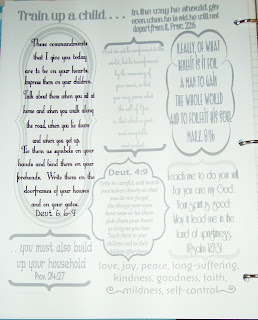 Train up a child . . . . in the way he should go
even when he is old he will not
depart from it. Prov. 22:6
These commandments
that I give you today
are to be on your hearts.
Impress them on your children.
Talk about them when you sit at
home and when you walk along
the road, when you lie down
and when you get up.
Tie them as symbols on your
hands and bind them on your
foreheads. Write them on the
doorframes of your houses
and on your gates.
Deut. 6: 6-9
REALLY, OF WHAT
BENEFIT IS IT FOR
A MAN TO GAIN
THE WHOLE WORLD
AND TO FORFEIT HIS SOUL?
MARK 8:36
Deut. 4:9
Only be careful, and watch
yourselves closely so that
you do not forget
the things your eyes
have seen or let them
fade from your heart
as long as you live.
Teach them to your
children and to their
Teach me to do your will,
for you are my God.
Your spirit is good;
May it lead me in the
land of uprightness.
Psalm
. . . you must also build
up your household
Prov. 24:27
love, joy, peace, long-suffering,
kindness, goodness, faith,
mildness, self-control